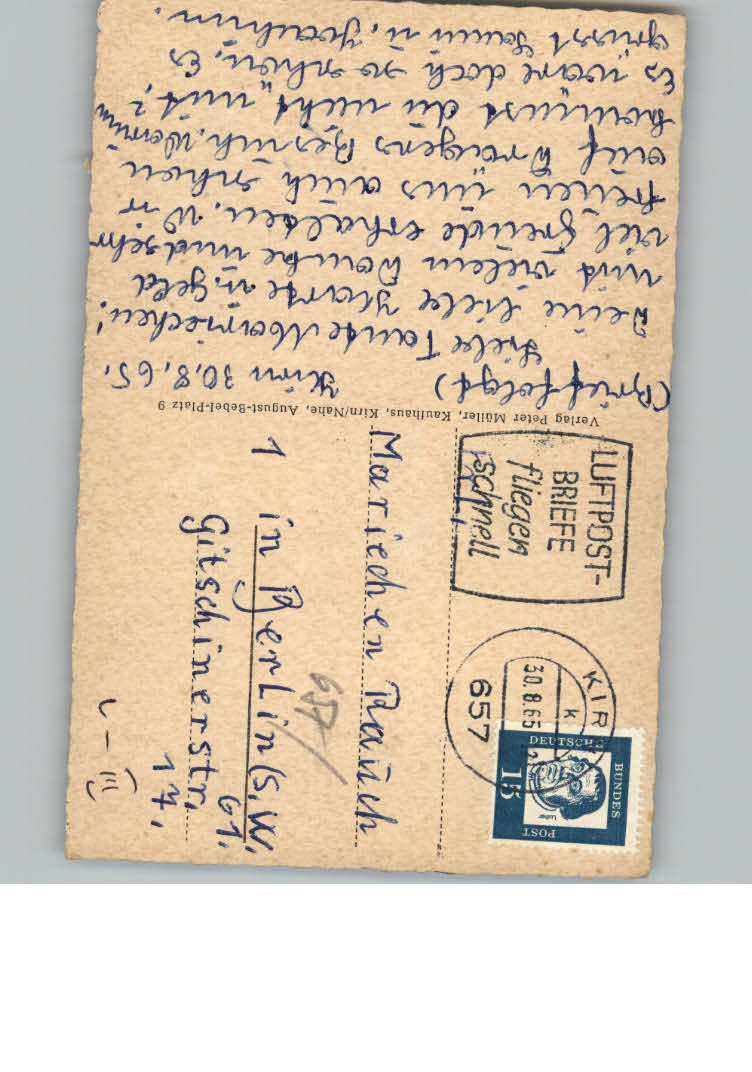 (Brief folgt) Kirn 30.8.65.
Liebe Tante Mariechen!
Deine liebe Karte u. geld
mit vielem Danke und sehr
viel Freude erhalten. Wir
freuen uns auch schon
auf Besuch. Warum
kommst du nicht mit?
Es wäre doch so schön. Es
grüsst u. Joachim.
Verlag Peter Müller, Kaufhaus, Kirn/Nahe, August-Bebel-Platz 9
LUFTPOST-
BRIEFE
fliegen
schnell
KIRN
30.8.65
657
DEUTSCHE
BUNDES
POST
15
Luther
Mariechen Rauch
657
1 in Berlin (S.W.
61.
Gitschinerstr.
17.